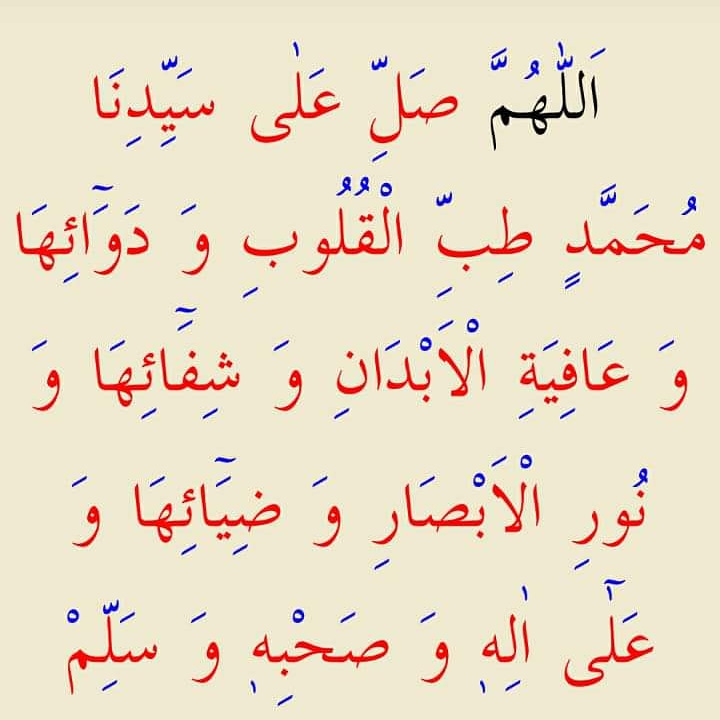 اَللّٰهُمَّ صَلِّ عَلٰى سَيِّدِنَا
مُحَمَّدٍ طِبِّ الْقُلُوبِ وَ دَوَآئِهَا
وَ عَافِيَةِ الْاَبْدَانِ وَ شِفَآئِهَا وَ
نُورِ الْاَبْصَارِ وَ ضِيَآئِهَا وَ
عَلٰٓى اٰلِهٖ وَ صَحْبِهٖ وَ سَلِّمْ